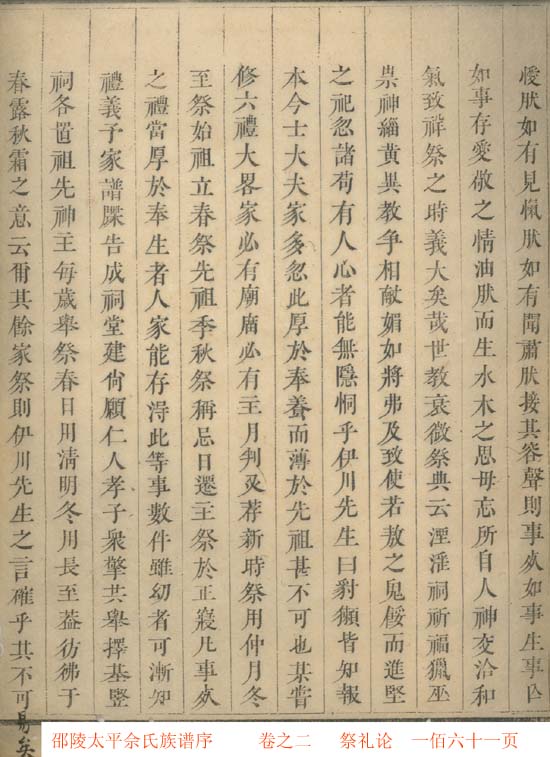 肰如有見愾肰如有聞肅肰接其容聲則事死如事生事亡
如事存愛敬之情油肰而生水木之思毋忘所自人神交洽和
氣致祥祭之時義大矣哉世教衰微祭典云湮淫祠祈福獵巫
祟神緇黃異教爭相献媚如將弗及致使若敖之鬼餒而進堅
之祀忽諸苟有人心者能無隱恫乎伊川先生曰豺獺皆知報
本今士大夫家多忽此厚於奉養而薄於先祖甚不可也某嘗
修六禮大畧家必有廟廟必有主月判必荐新時祭用仲月冬
至祭始祖立春祭先祖季秋祭稱忌日遷主祭於正寢凡事死
之禮當厚於奉生者人家能存淂此等事數件雖幼者可漸知
禮義予家譜牒告成祠堂建尚願仁人孝子衆擎共舉擇基豎
祠各置祖先神主每歲舉祭春日用清明冬用長至葢彷彿于
春露秋霜之意云爾其餘家祭則伊川先生之言確乎其不可易矣
邵陵太平佘氏族谱序 卷之二 祭礼论 一佰六十一页